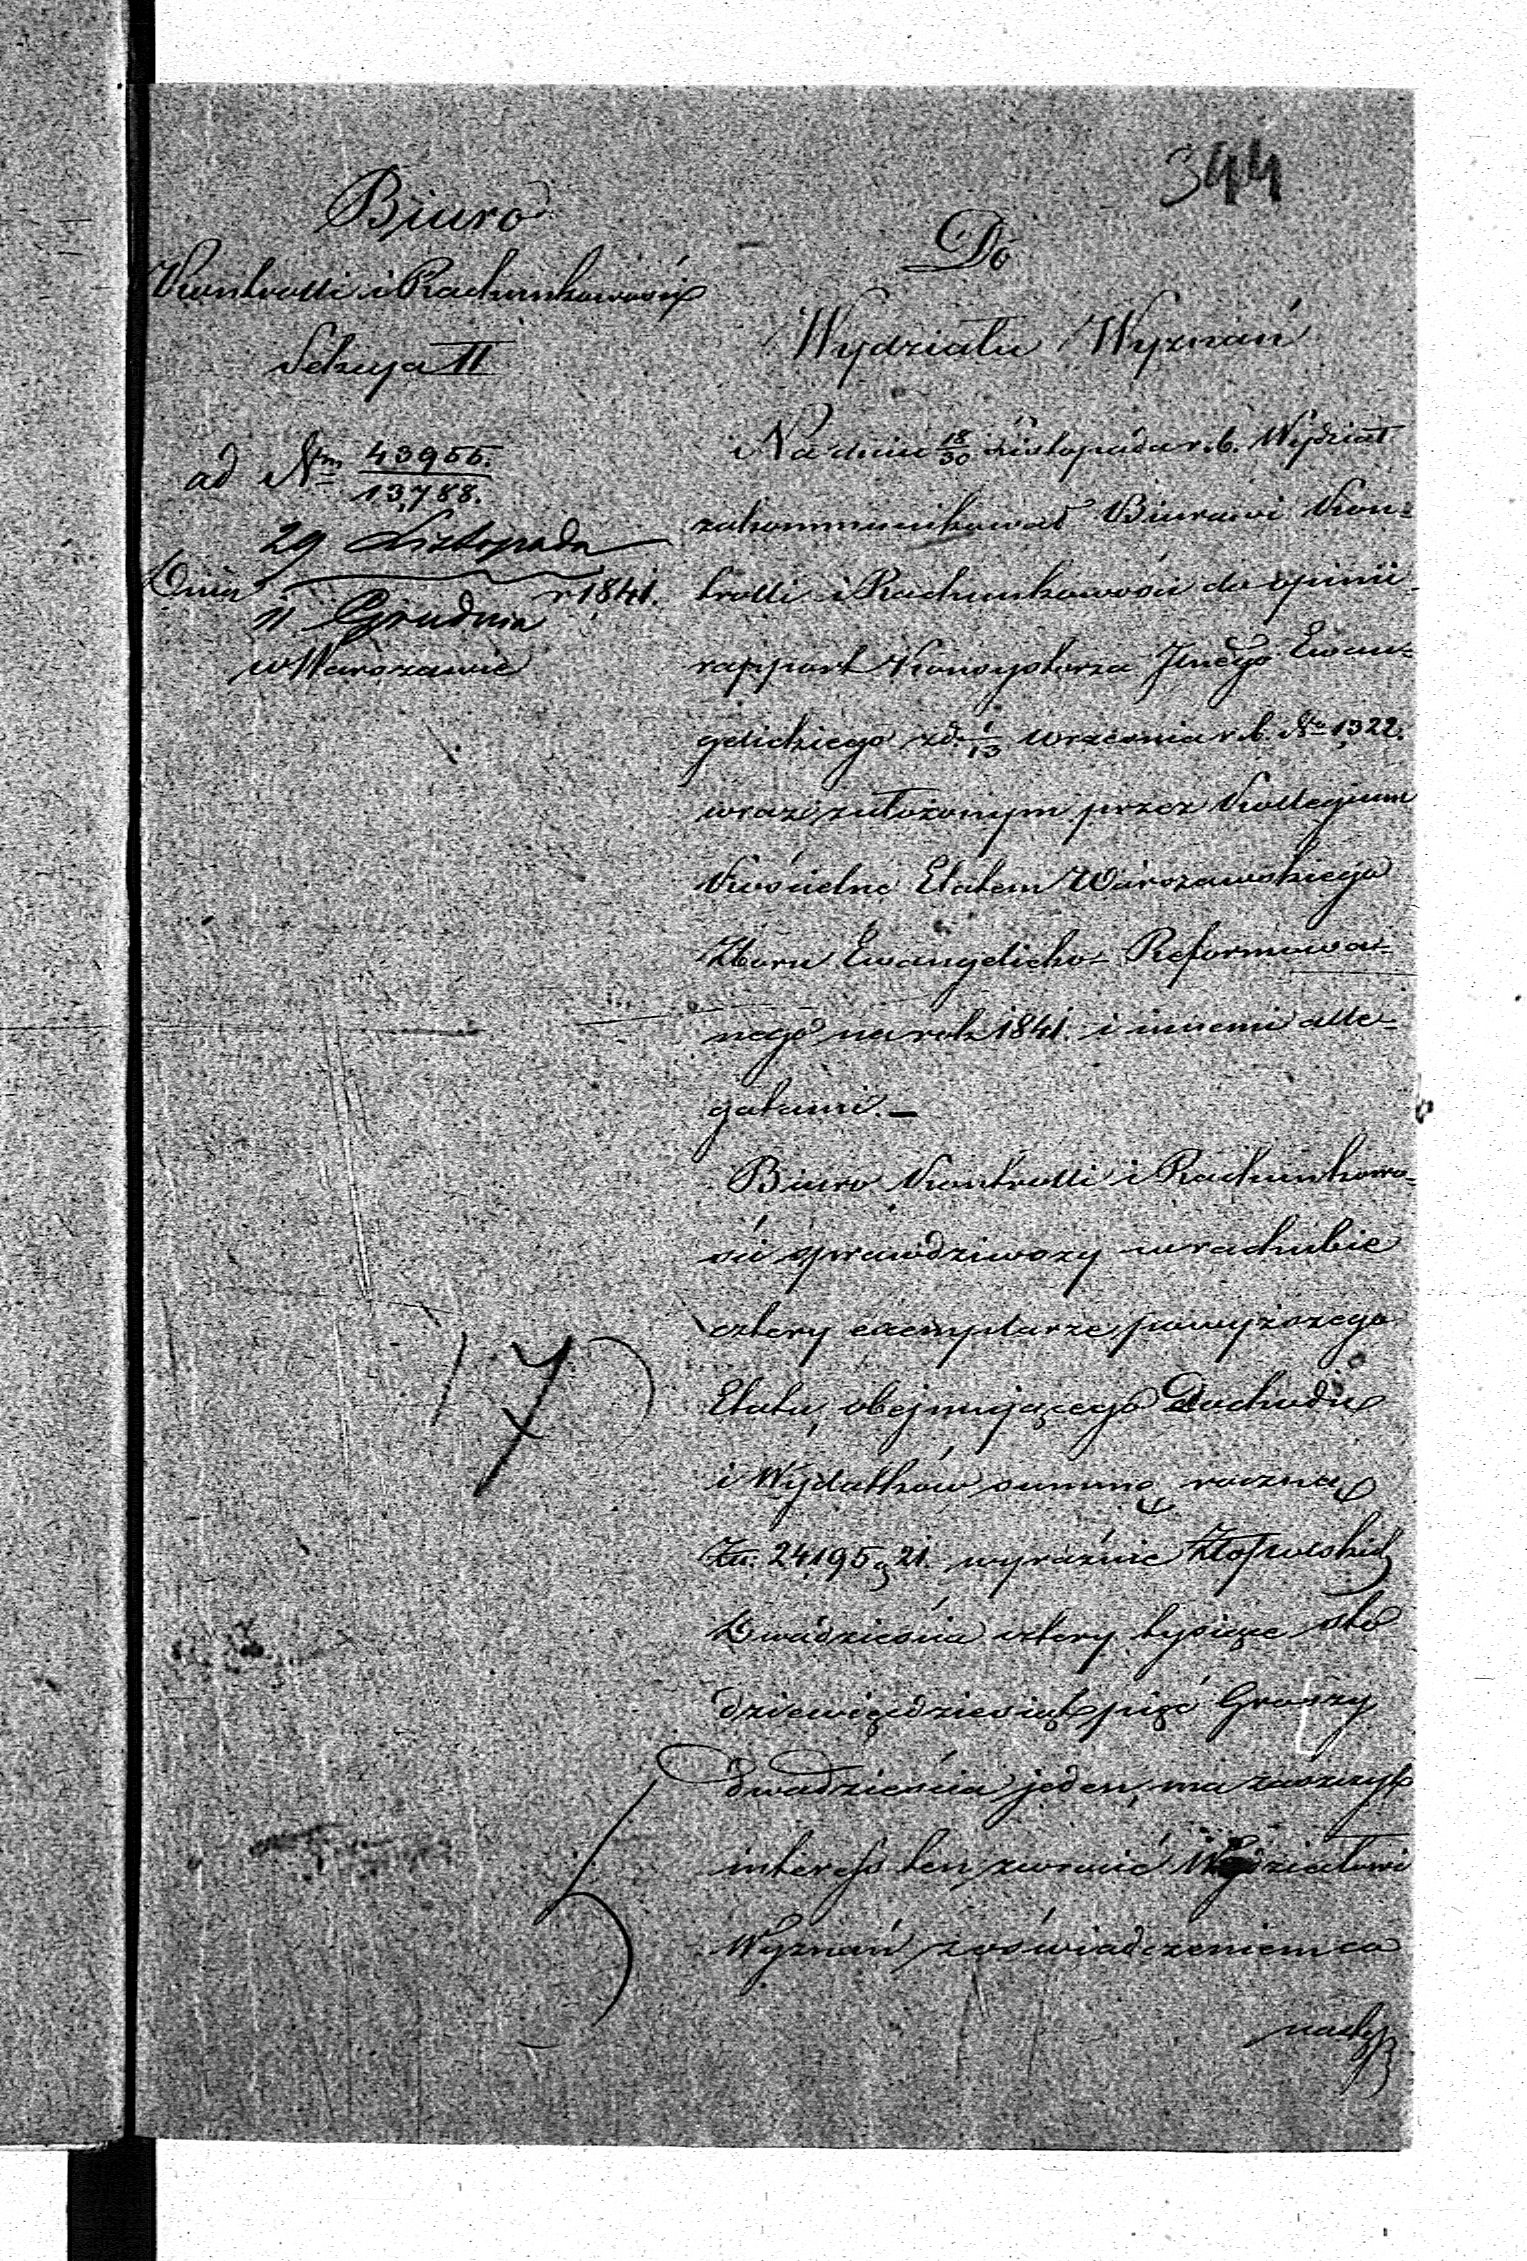 344
Biuro
Kontrolli i Rachunkowości
Sekcya II
ad Nrm 43955.
13,788.
29 Listopada
Dnia r 1841.
11 Grudnia
w Warszawie
Do
Wydziału Wyznań
Na dniu 18/30 Listopada r. b. Wydział
zakommunikował Biurowi Kon=
trolli i Rachunkowości do opinii
rapport Konsystorza Jlnego Ewan=
gelickiego z d. 1/13 Września r. b. No 1322.
wraz z ułożonym przez Kollegium
Kościelne Etatem Warszawskiego
Zboru Ewangelicko= Reformowa=
nego na rok 1841. i innemi alle=
gatami. —
Biuro Kontrolli i Rachunkowo=
ści sprawdziwszy w rachubie
cztery exemplarze powyższego
Etatu, obejmującego Dochodu
i Wydatków summę roczną
Zł. 24,195 g 21. wyraźnie Złotpolskich
Dwadzieścia cztery tysiące sto
dziewięćdziesiąt pięć Groszy
dwadzieścia jeden, ma zaszczyt
interess ten zwrócić Wydziałowi
Wyznań z oświadczeniem co
nastę